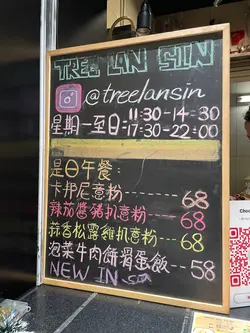 TREE LAN SIIN
@treelansin
星期一至日:11:30-14:30
17:30-22:00
是日午餐:
卡邦尼意粉----68
辣茄醬豬扒意粉---68
蒜香松露雞扒意粉--68
泡菜牛肉餅滑蛋飯--58
NEW IN